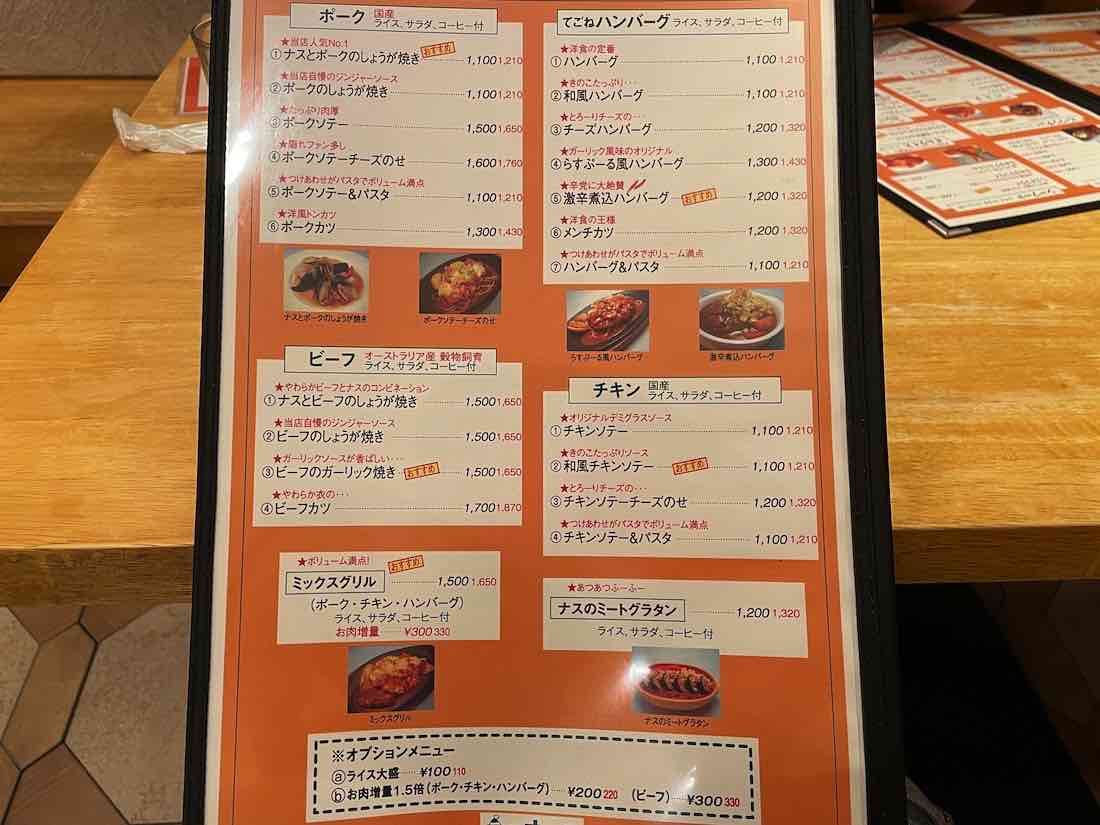 ポーク 国産
ライス、サラダ、コーヒー付
★当店人気No.1
①ナスとポークのしょうが焼き おすすめ 1,100 1,210
★当店自慢のジンジャーソース
②ポークのしょうが焼き 1,100 1,210
★たっぷり肉厚
③ポークソテー 1,500 1,650
★隠れファン多し
④ポークソテーチーズのせ 1,600 1,760
★つけあわせがパスタでボリューム満点
⑤ポークソテー&パスタ 1,100 1,210
★洋風トンカツ
⑥ポークカツ 1,300 1,430
ナスとポークのしょうが焼き
ポークソテーチーズのせ
ビーフ オーストラリア産 穀物飼育
ライス、サラダ、コーヒー付
★やわらかビーフとナスのコンビネーション
①ナスとビーフのしょうが焼き 1,500 1,650
★当店自慢のジンジャーソース
②ビーフのしょうが焼き 1,500 1,650
★ガーリックソースが香ばしい・・・
③ビーフのガーリック焼き おすすめ 1,500 1,650
★やわらか衣の・・・
④ビーフカツ 1,700 1,870
★ボリューム満点! おすすめ
ミックスグリル 1,500 1,650
(ポーク・チキン・ハンバーグ)
ライス、サラダ、コーヒー付
お肉増量 ¥300 330
ミックスグリル
てごねハンバーグ ライス、サラダ、コーヒー付
★洋食の定番
①ハンバーグ 1,100 1,210
★きのこたっぷり・・・
②和風ハンバーグ 1,100 1,210
★とろーりチーズの・・・
③チーズハンバーグ 1,200 1,320
★ガーリック風味のオリジナル
④らすぷーる風ハンバーグ 1,300 1,430
★辛党に大絶賛
⑤激辛煮込ハンバーグ おすすめ 1,200 1,320
★洋食の王様
⑥メンチカツ 1,200 1,320
★つけあわせがパスタでボリューム満点
⑦ハンバーグ&パスタ 1,100 1,210
らすぷーる風ハンバーグ
激辛煮込ハンバーグ
チキン 国産
ライス、サラダ、コーヒー付
★オリジナルデミグラスソース
①チキンソテー 1,100 1,210
★きのこたっぷりソース
②和風チキンソテー おすすめ 1,100 1,210
★とろーりチーズの・・・
③チキンソテーチーズのせ 1,200 1,320
★つけあわせがパスタでボリューム満点
④チキンソテー&パスタ 1,100 1,210
★あつあつふーふー
ナスのミートグラタン 1,200 1,320
ライス、サラダ、コーヒー付
ナスのミートグラタン
※オプションメニュー
ⓐライス大盛 ¥100 110
ⓑお肉増量1.5倍(ポーク・チキン・ハンバーグ) ¥200 220 (ビーフ) ¥300 330